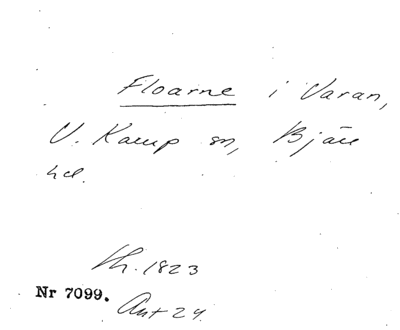 Floarne i Varan,
V. Karup sn, Bjäre
hd.
Lh. 1823
Nr 7099.
Ant 24